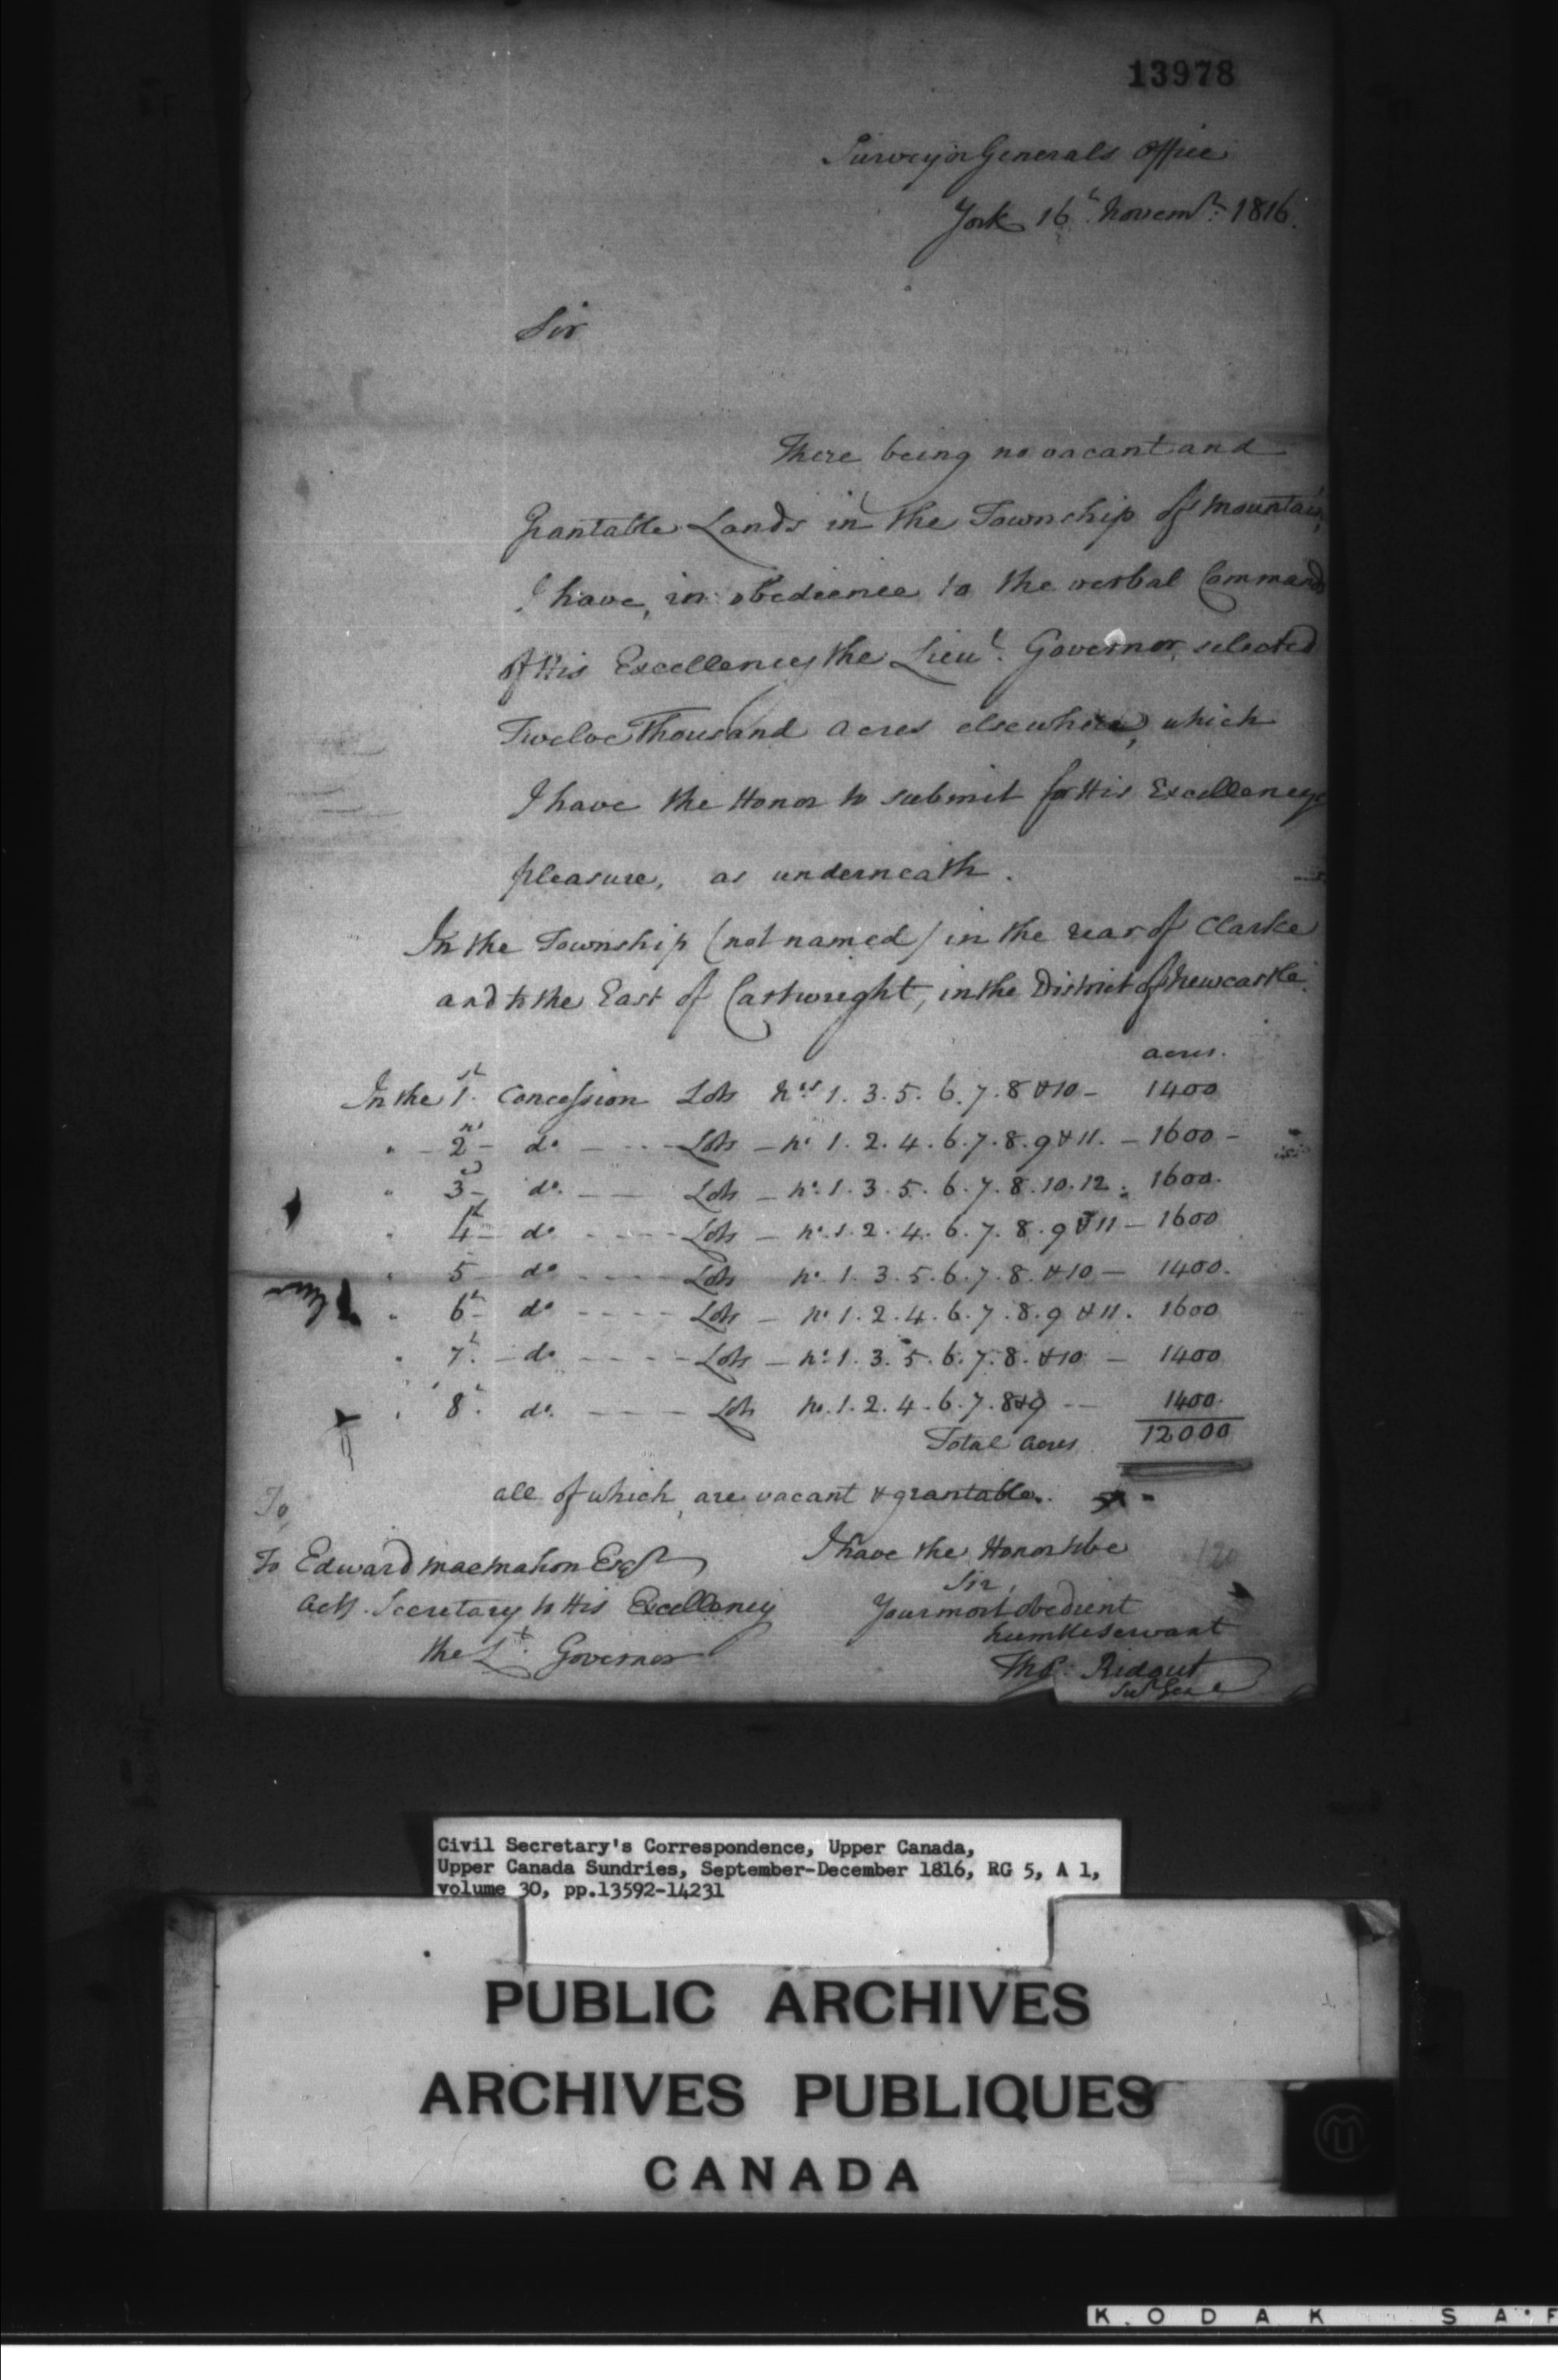 13978
Surveyor Generals Office
York 16th Novemr. 1816.
Sir
There being no vacant and
Grantable Lands in the Township of Mountain,
I have, in obedience to the verbal Commands
of His Excellency the Lieut. Governor, selected
Twelve Thousand acres elsewhere, which
I have the Honor to submit for His Excellencys
pleasure, as underneath.
In the Township (not named) in the rear of Clarke
and to the East of Cartwright, in the District of Newcastle.
acres.
In the 1st. Concession Lots Nos. 1. 3. 5. 6. 7. 8 & 10 - 1400
" - 2nd - do - - - - Lots - No. 1. 2. 4. 6. 7. 8. 9 & 11. - 1600 -
" 3d - do. - - Lots - No. 1. 3. 5. 6. 7. 8. 10. 12. 1600.
" 4th - do - - - - Lots - No. 1. 2. 4. 6. 7. 8. 9 & 11 - 1600
" 5 - do - - - - Lots No. 1. 3. 5. 6. 7. 8. & 10 - 1400.
" 6th - do - - - - Lots - No. 1. 2. 4. 6. 7. 8. 9 & 11. 1600
" 7th. - do - - - - Lots - No. 1. 3. 5. 6. 7. 8. & 10 - 1400
" 8th. do. - - - Lots No. 1. 2. 4. 6. 7. 8 & 9 - - 1400.
Total Acres 12000
all of which, are vacant & grantable.
To
I have the Honor to be
To Edward MacMahon Esqr
Sir,
Actg. Secretary to His Excellency
Your most obedient
humble servant
the Lt. Governor
Thos. Ridout
Survr Genl
Civil Secretary's Correspondence, Upper Canada,
Upper Canada Sundries, September-December 1816, RG 5, A 1,
volume 30, pp.13592-14231
PUBLIC ARCHIVES
ARCHIVES PUBLIQUES
CANADA
KODAK SAF